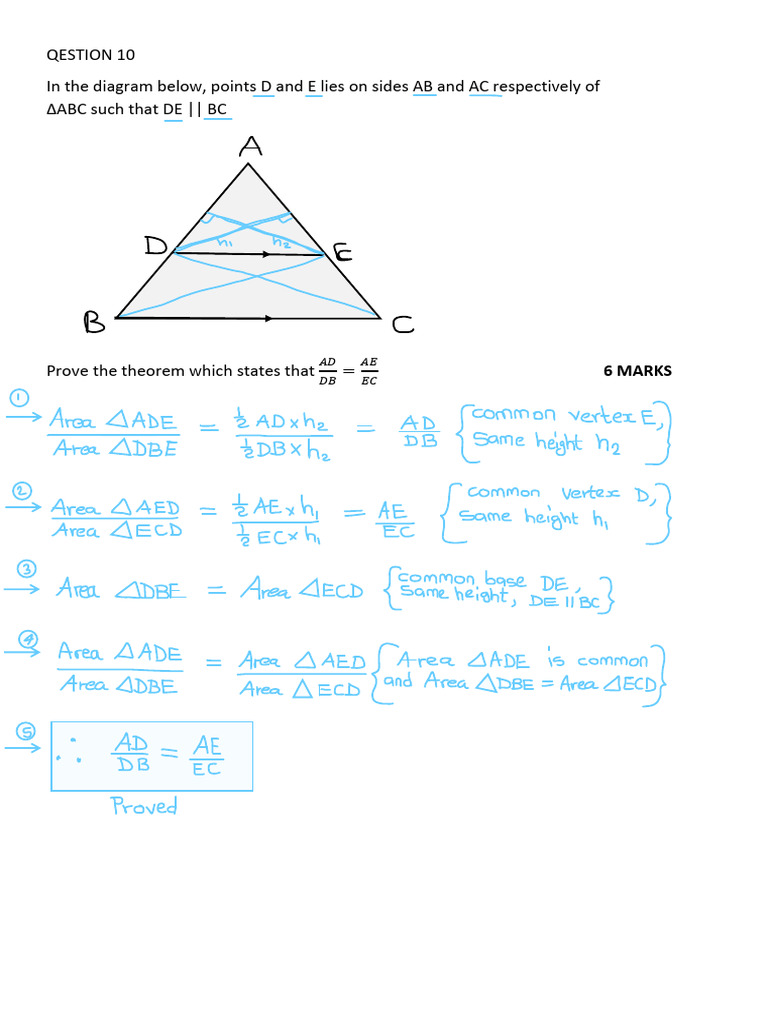 QESTION 10
In the diagram below, points D and E lies on sides AB and AC respectively of
ΔABC such that DE || BC
A
D h₁ h₂ E
B C
Prove the theorem which states that AD/DB = AE/EC 6 MARKS
① → Area △ADE / Area △DBE = ½ AD × h₂ / ½ DB × h₂ = AD/DB {common vertex E, same height h₂}
② → Area △AED / Area △ECD = ½ AE × h₁ / ½ EC × h₁ = AE/EC {common vertex D, same height h₁}
③ → Area △DBE = Area △ECD {common base DE, same height, DE || BC}
④ → Area △ADE / Area △DBE = Area △AED / Area △ECD {Area △ADE is common and Area △DBE = Area △ECD}
⑤ → ∴ AD/DB = AE/EC
Proved